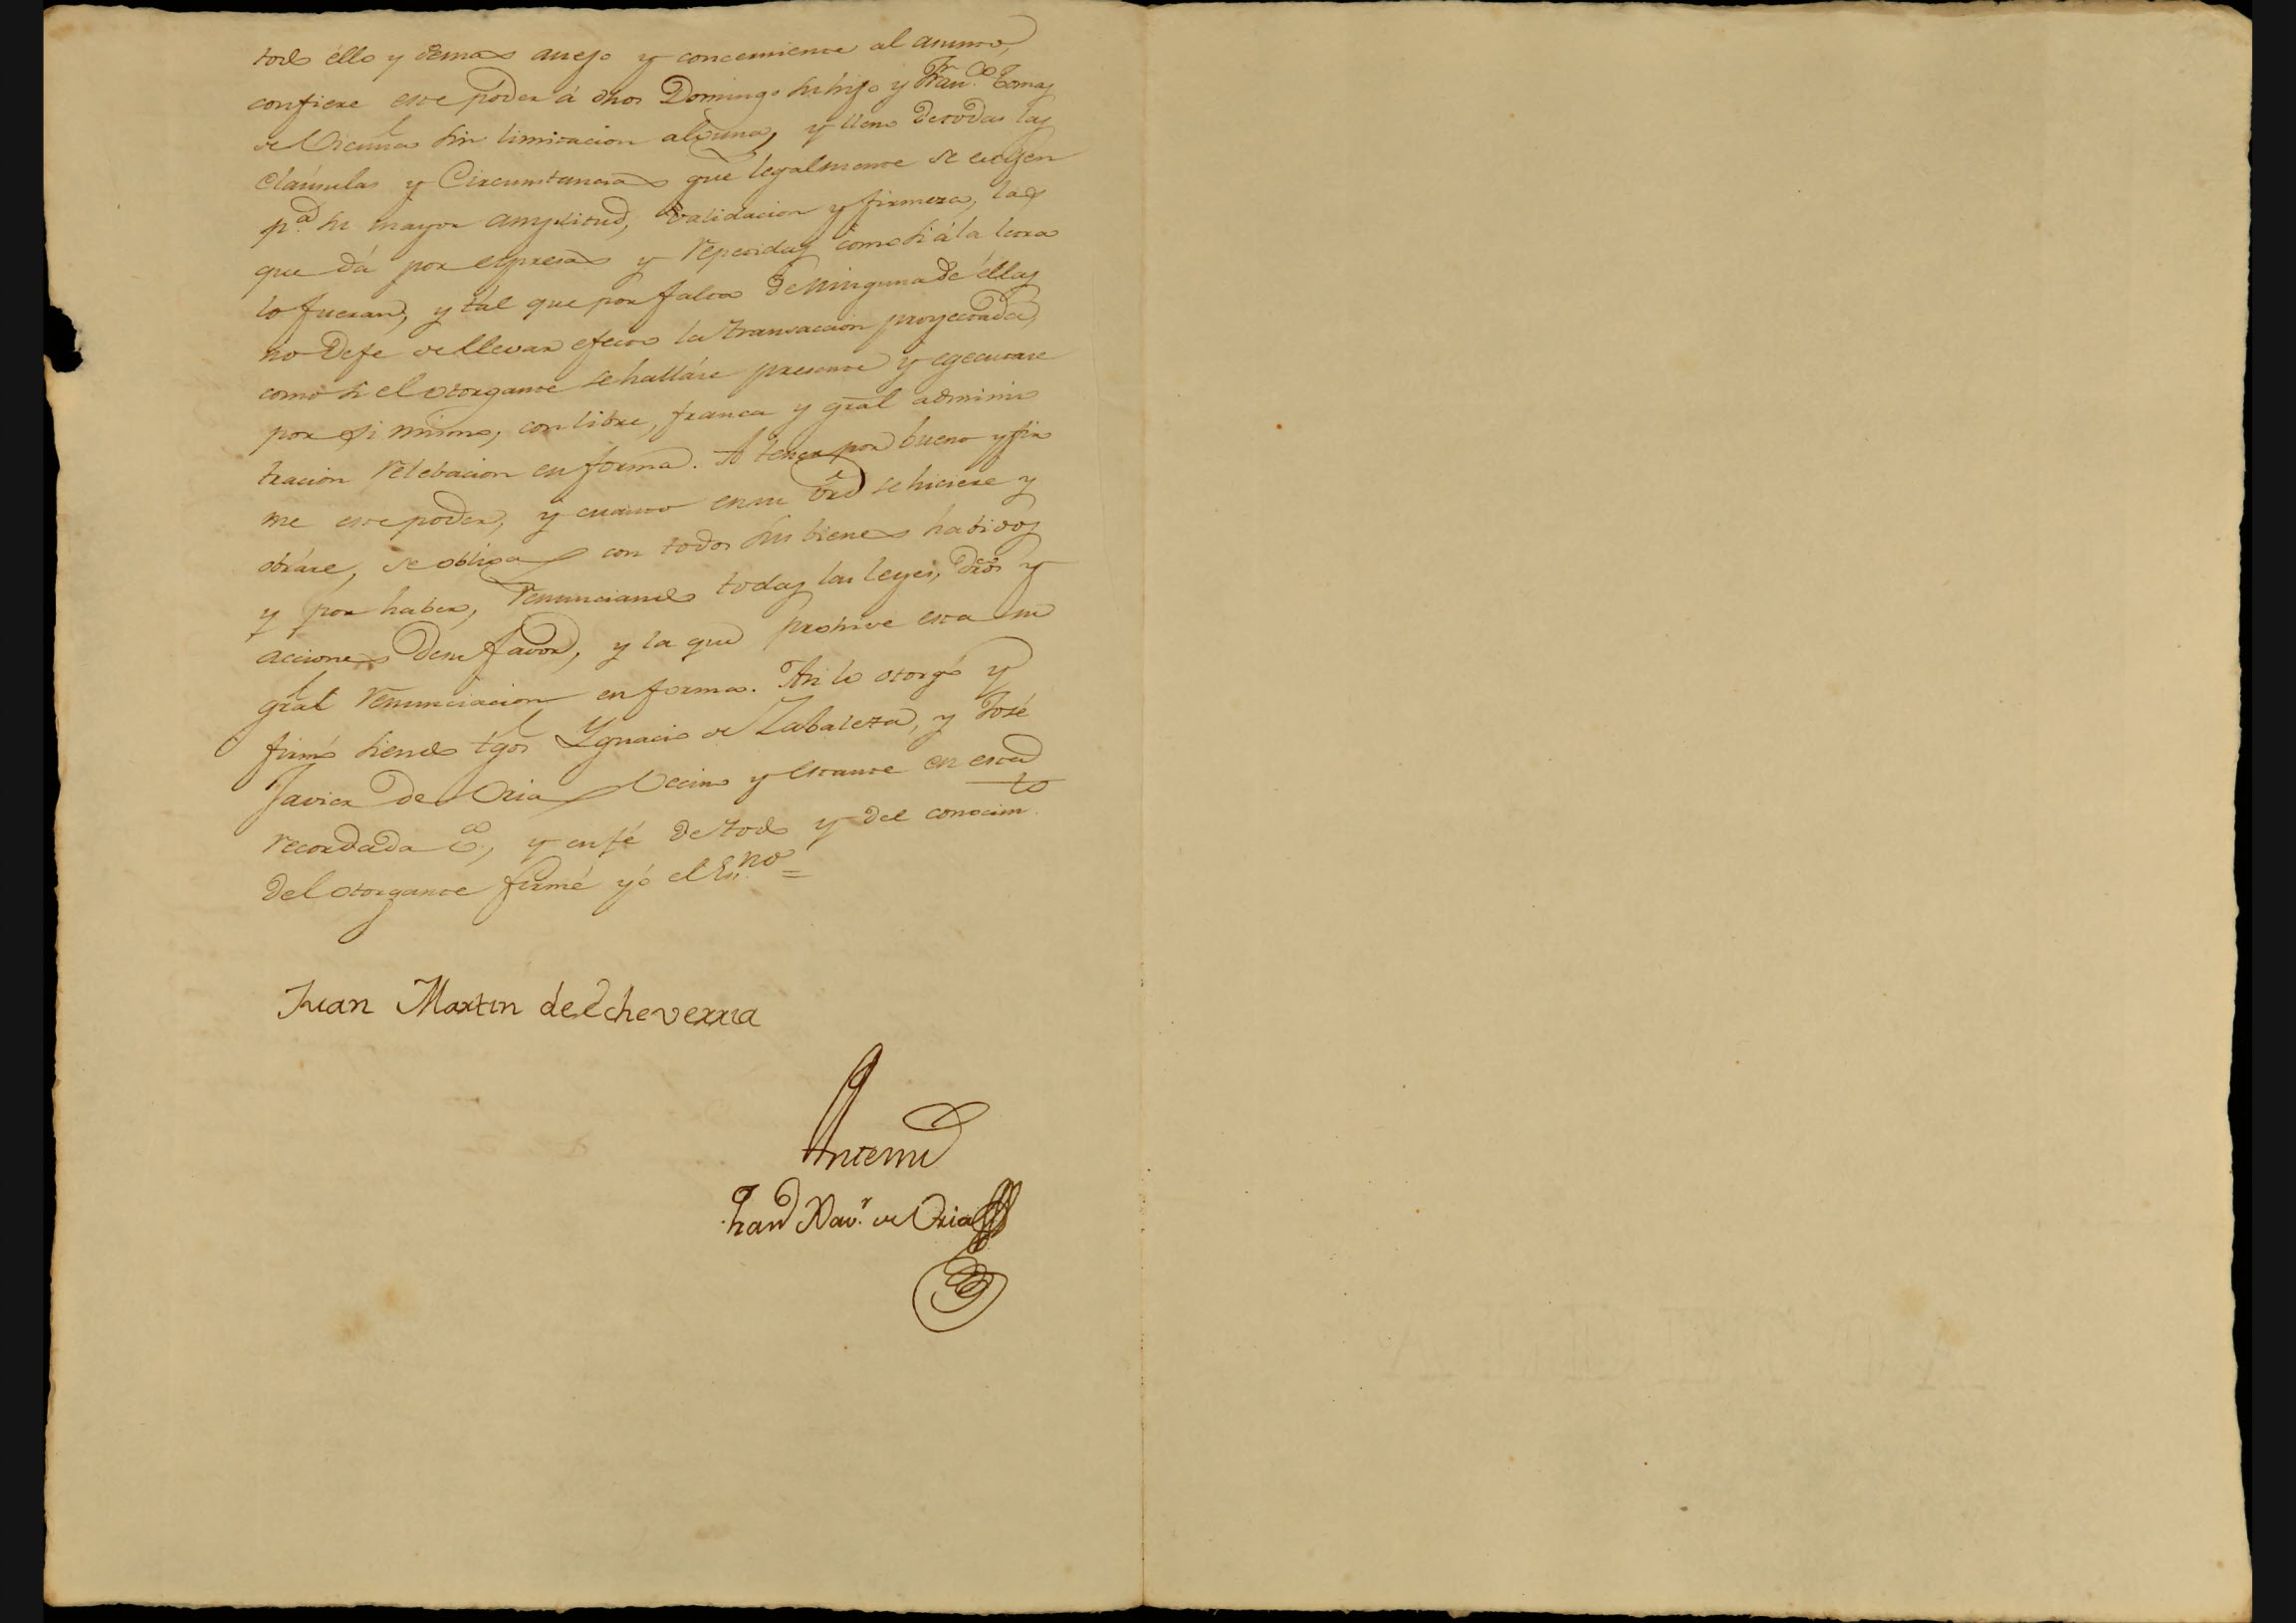 todo éllo y demas anejo y concerniente al asunto,
confiere este poder á dhos Domingo su hijo y Fran.co Tomas
de Vicuña sin limitacion alguna, y lleno de todas las
Cláusulas y Circunstancias que legalmente se exigen
p.a su mayor amplitud, validacion y firmeza, las
que dá por espresas y repetidas como si á la letra
lo fueran, y tál que por falta de ninguna de éllas
no deje de llevar efecto la transaccion proyectada,
como si el otorgante se halláre presente y egecutare
por si mismo, con libre, franca y gral adminis
tracion relebacion en forma. A tener por bueno y fir
me este poder, y cuanto en su vrd se hiciere y
obráre, se obliga con todos sus bienes habidos
y por haber, renunciando todas las leyes, dros y
acciones de su favor, y la que prohive esta su
gral renunciacion en forma. Asi lo otorgó y
firmó siendo tgos Ygnacio de Zabaleta, y José
Javier de Oria Vecino y Estante en esta
recordada V.a, y en fé de todo y del conocim.to
del otorgante firmé yó el Es.no =
Juan Martin de Echeverria
Ante mi
Juan Xav.r de Oria